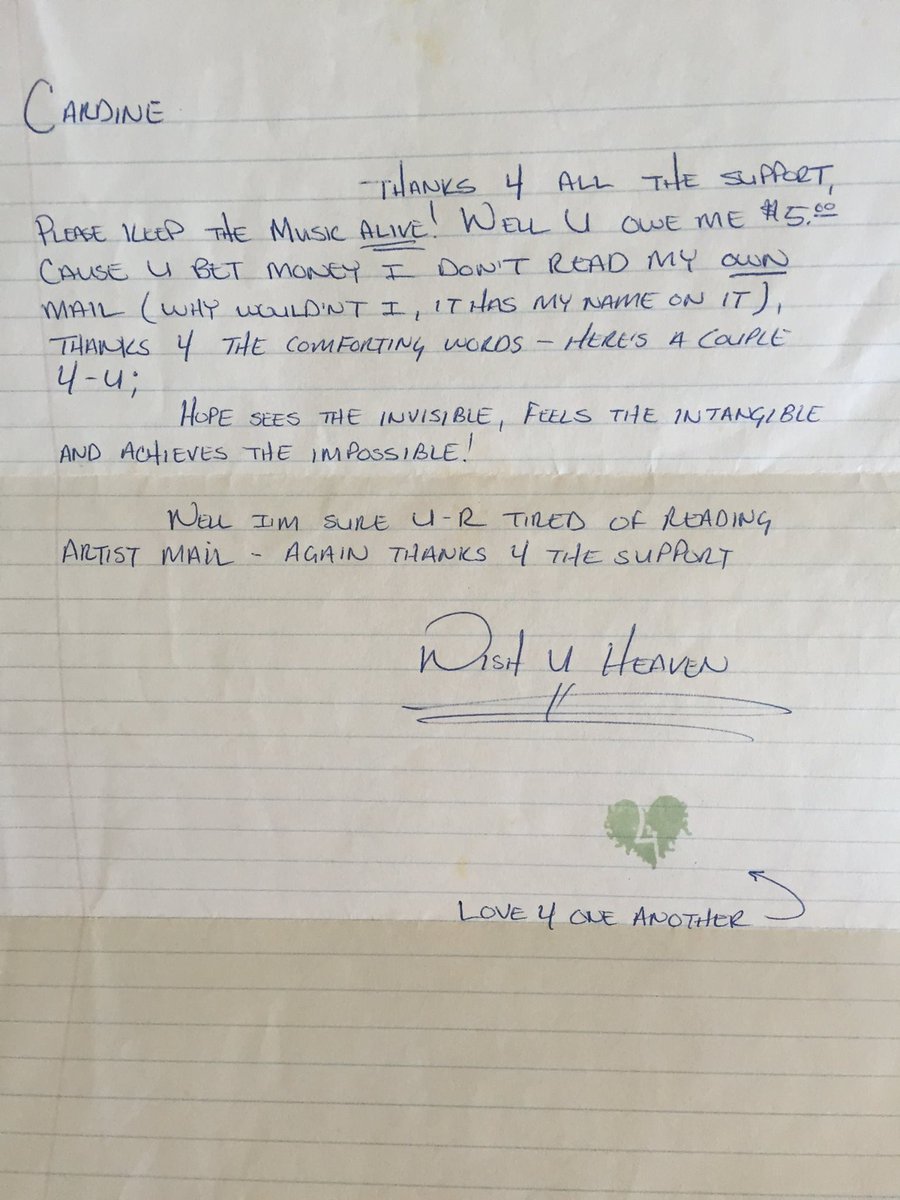 CARDINE
THANKS 4 ALL THE SUPPORT,
PLEASE KEEP THE MUSIC ALIVE! WELL U OWE ME $5.00
CAUSE U BET MONEY I DON'T READ MY OWN
MAIL (WHY WOULD'NT I, IT HAS MY NAME ON IT),
THANKS 4 THE COMFORTING WORDS – HERE'S A COUPLE
4-U;
HOPE SEES THE INVISIBLE, FEELS THE INTANGIBLE
AND ACHIEVES THE IMPOSSIBLE!
WELL I'M SURE U-R TIRED OF READING
ARTIST MAIL – AGAIN THANKS 4 THE SUPPORT
WISH U HEAVEN
4
LOVE 4 ONE ANOTHER